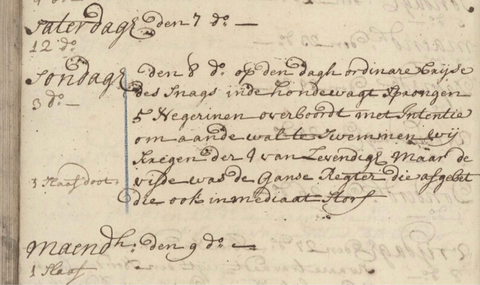 Saterdagh den 7 do —
12 do
Sondagh den 8 do op den dagh ordinare Exijse
3 do — des Snags inde hondewagt Sprongen
5 Negerinen overboordt met Intentia
om aande wal te Swemmen, wij
kregen der 4 van Levendigh Maar de
1 Slaaf doot vifde was de Ganse Regter die afgebet
die ook inmediaat Storf
Maendh. den 9 do —
1 Slaaf